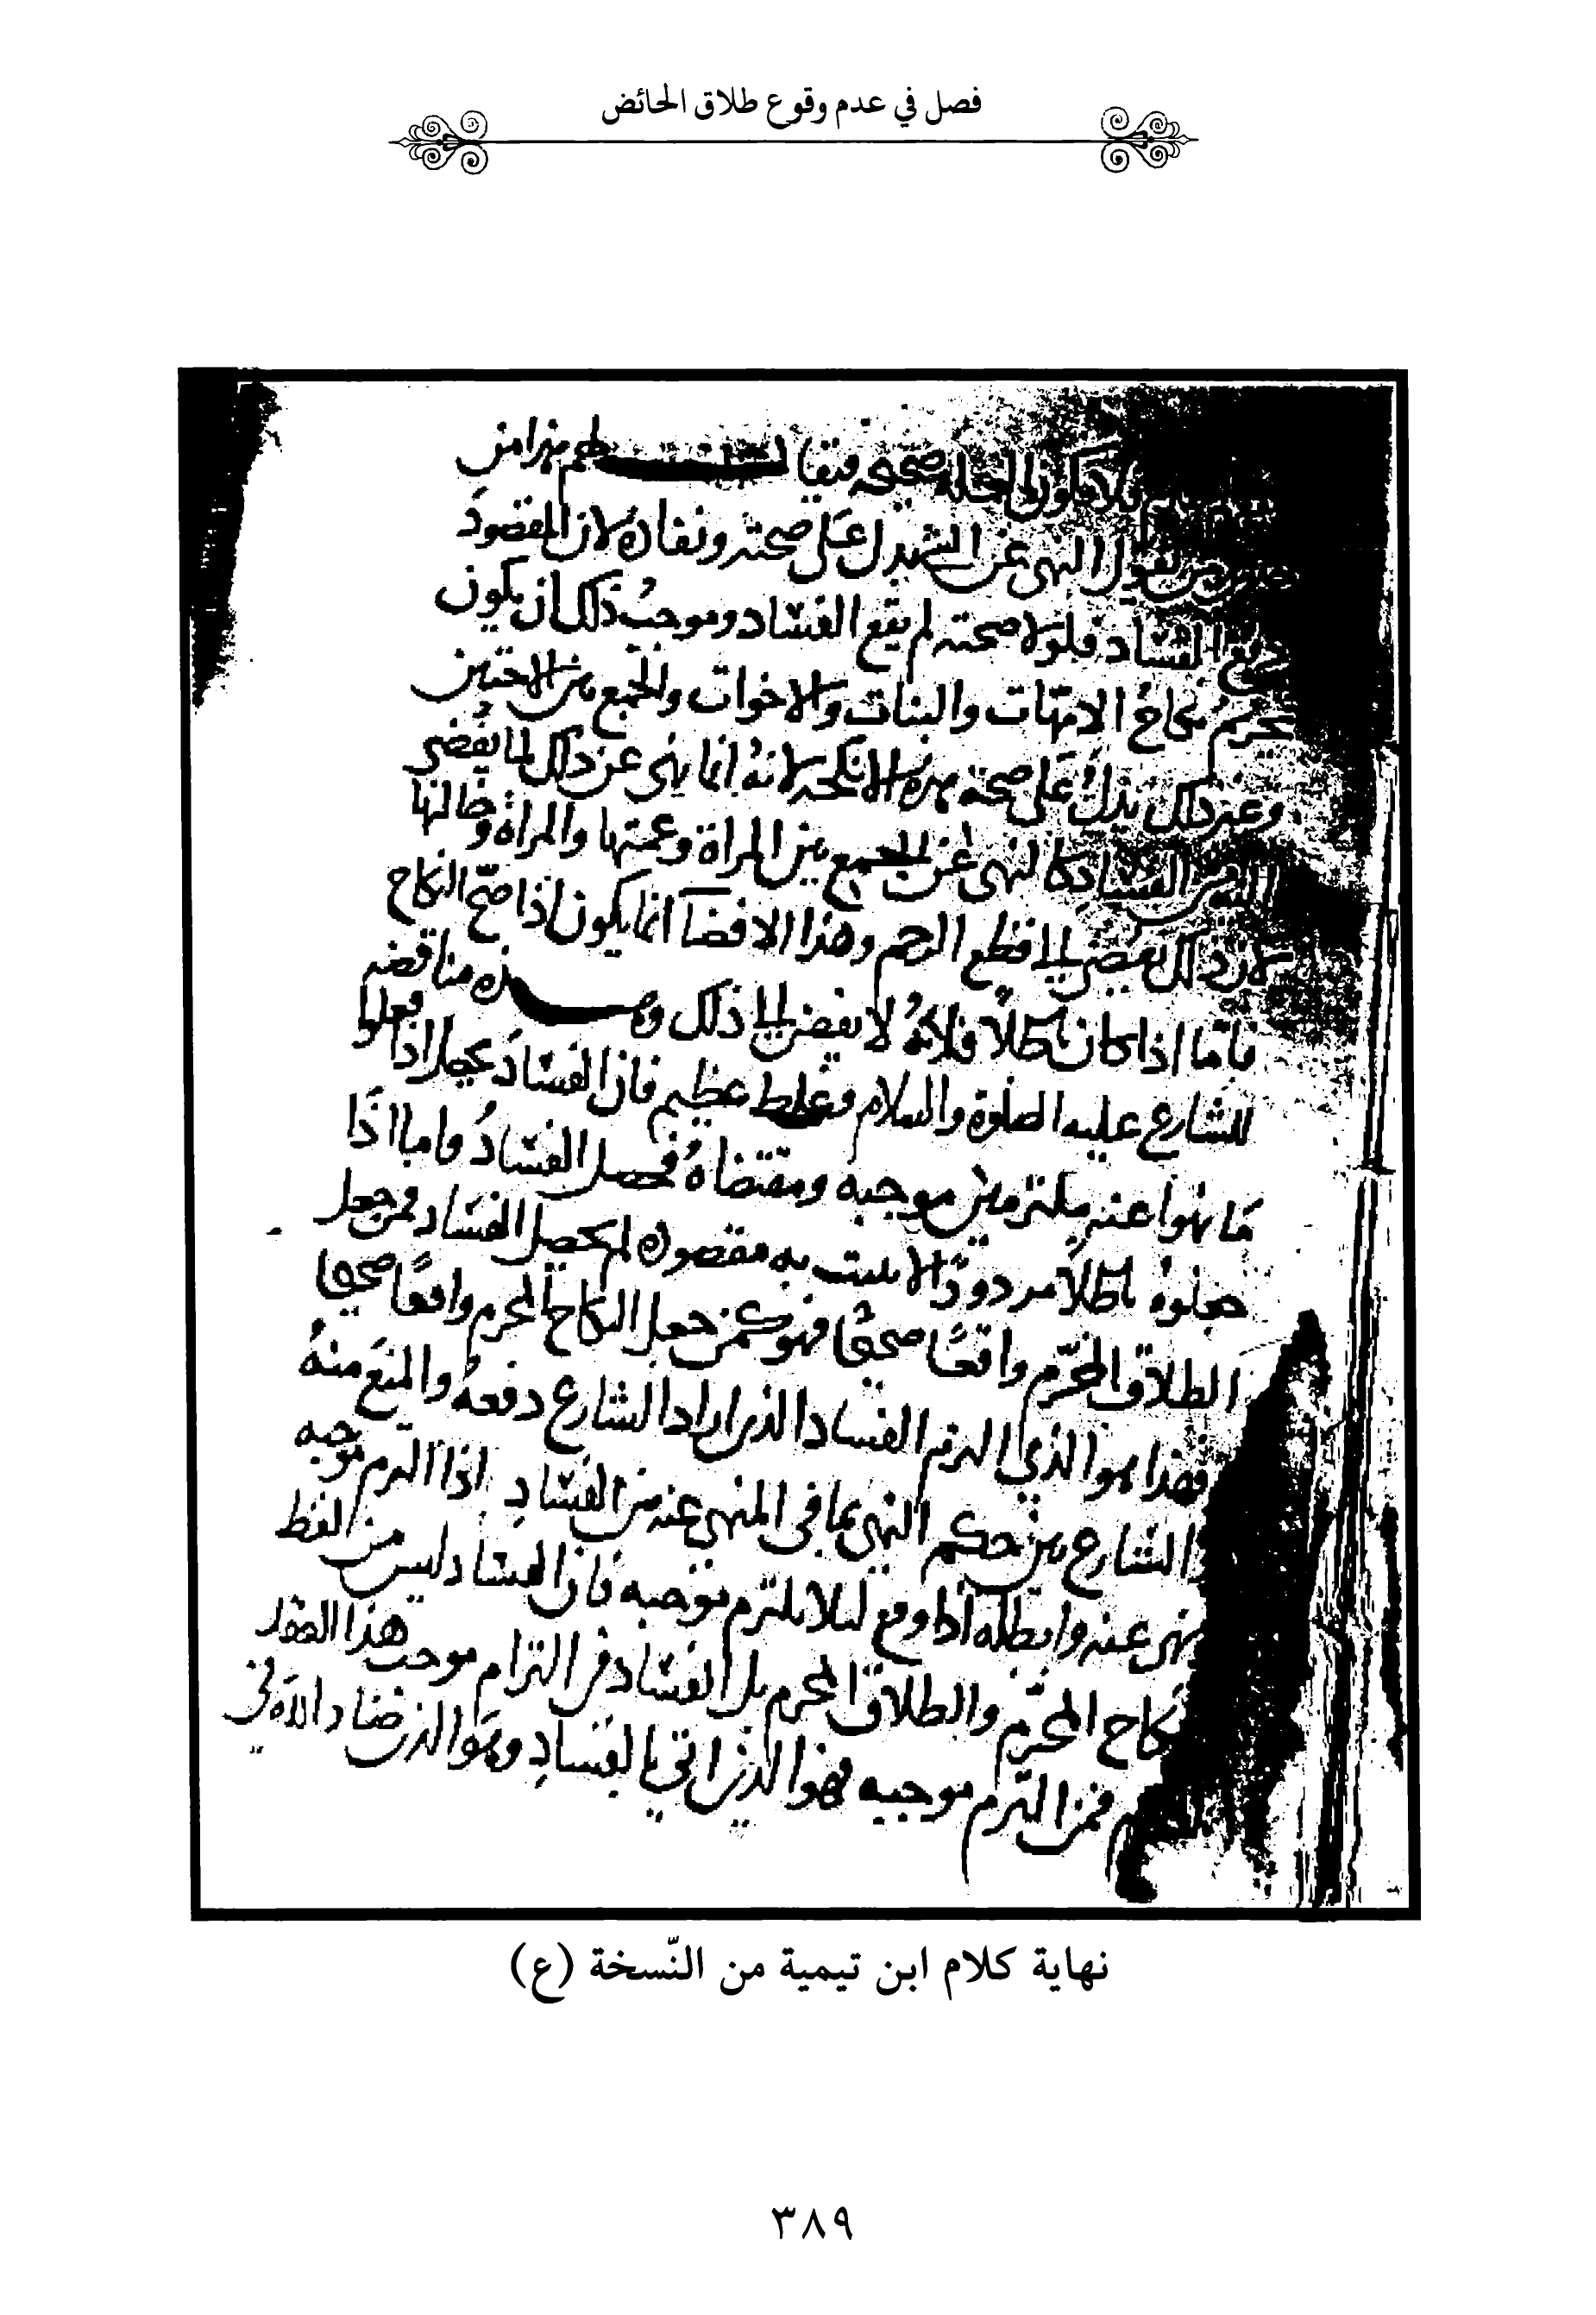 فصل في عدم وقوع طلاق الحائض
صحيحه فيقال لهم هذا من
النهى عن الشي يدل على صحته ونفاذه لان المقصود
الفساد فلولا صحته لم يقع الفساد وموجب ذلك ان يكون
تحريم نكاح الامهات والبنات والاخوات والجمع بين الاختين
وغير ذلك يدل على صحة هذه الانكحه لانه انما ينهى عن ذلك لما يفضى
اليه من الفساد كالنهى عن الجمع بين المراة وعمتها والمراة وخالتها
لان ذلك يفضى الى قطع الرحم وهذا الافضا انما يكون اذا صح النكاح
فاما اذا كان باطلاً فلانه لا يفضى الى ذلك وهذه مناقضه
للشارع عليه الصلوة والسلام وغلط عظيم فان الفساد يحصل اذا فعلوا
ما نهوا عنه ملتزمين موجبه ومقتضاه فحصل الفساد واما اذا
جعلوه باطلاً مردودًا لا يثبت به مقصوده لم يحصل الفساد فمن جعل
الطلاق المحرّم واقعًا صحيحًا فهو كمن جعل النكاح المحرم واقعًا صحيحا
فهذا هو الذي الزم الفساد الذى اراد الشارع دفعه والمنع منه
الشارع بين حكم النهى بما فى المنهى عنه من الفساد اذا التزم موجبه
نهى عنه وابطله اذا وقع ليلا يلتزم موجبه فان الفساد ليس من لفظ
نكاح المحرّم والطلاق المحرم بل الفساد فى التزام موجب هذا العقد
فمن التزم موجبه فهو الذى اتي بالفساد وهو الذى ضاد الله في
نهاية كلام ابن تيمية من النّسخة (ع)
٣٨٩